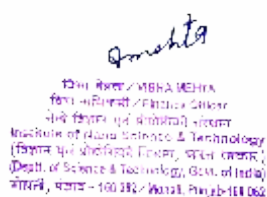 Amehta
विभा मेहता / VIBHA MEHTA
वित्त अधिकारी / Finance Officer
नैनो विज्ञान एवं प्रौद्योगिकी संस्थान
Institute of Nano Science & Technology
(विज्ञान एवं प्रौद्योगिकी विभाग, भारत सरकार)
(Deptt. of Science & Technology, Govt. of India)
मोहाली, पंजाब - 160 062 / Mohali, Punjab-160 062